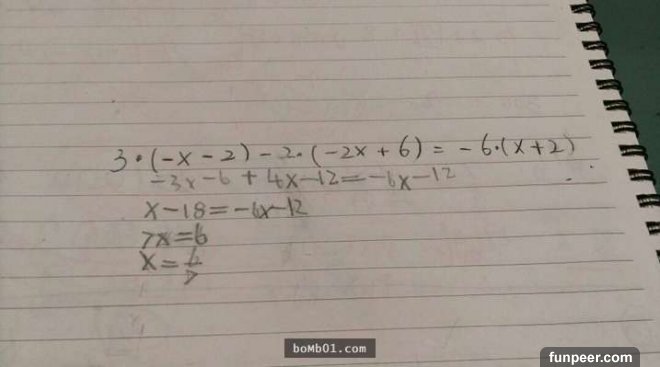 3·(-x-2)-2·(-2x+6)=-6·(x+2)
-3x-6+4x-12=-6x-12
x-18=-6x-12
7x=6
x=6/7
boMb01.com
funpeer.com